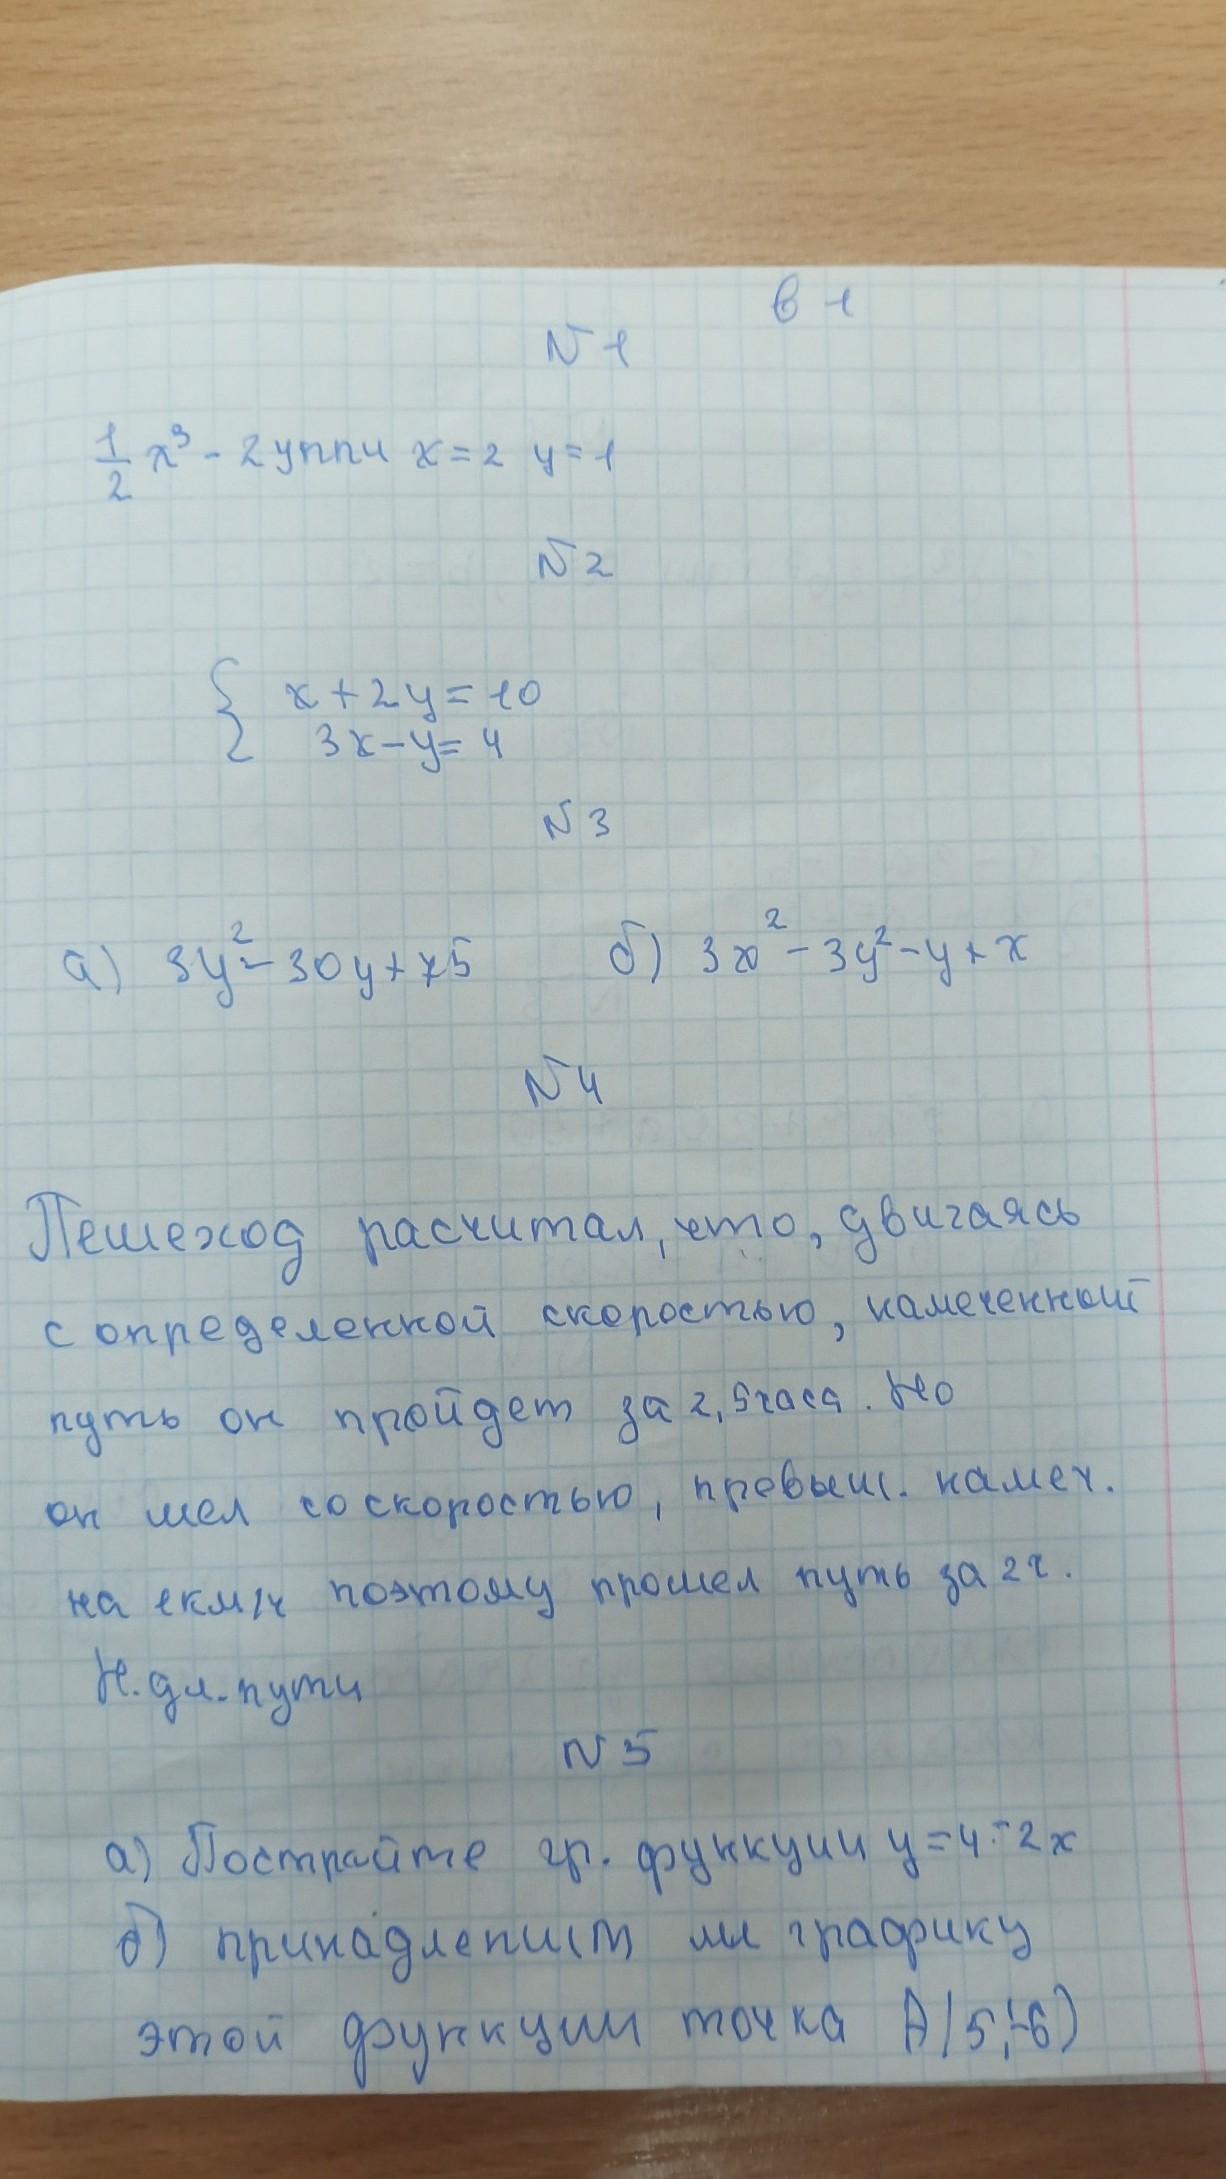 в 1
N 1
1/2 x³ - 2y при x = 2 y = 1
N 2
{ x + 2y = 10
3x - y = 4
N 3
а) 3y² - 30y + 75 б) 3x² - 3y² - y + x
N 4
Пешеход расчитал, что, двигаясь
с определенной скоростью, намеченный
путь он пройдет за 2,5 часа. Но
он шел со скоростью, превыш. намеч.
на 1 км/ч поэтому прошел путь за 2 ч.
Н. дл. пути
N 5
а) Постройте гр. функции y = 4 - 2x
б) принадлепит ли графику
этой функции точка A(5;-6)